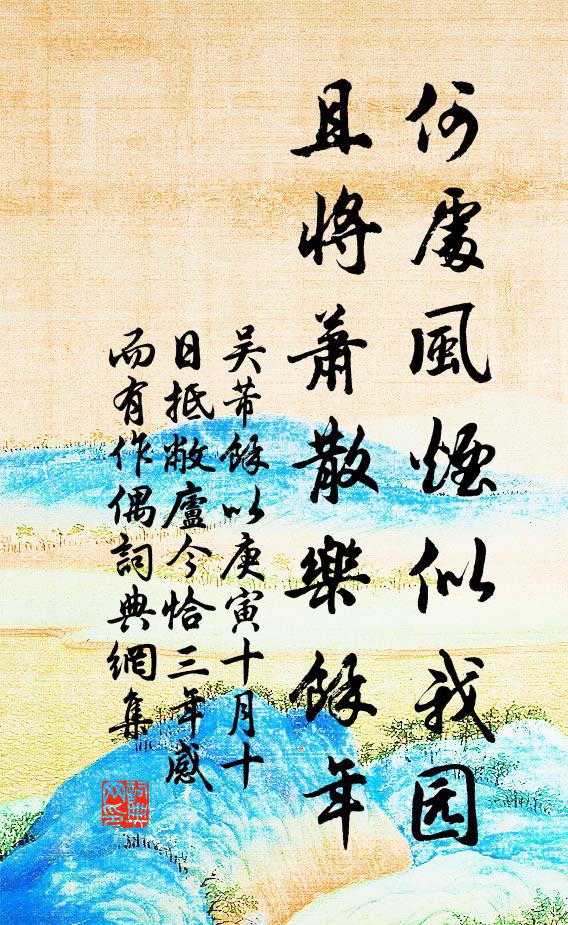 何處風煙似我园
且將蕭散樂餘年
吴芾餘以庚寅十月十
日抵敝廬今恰三年感
而有作偶詞典網集